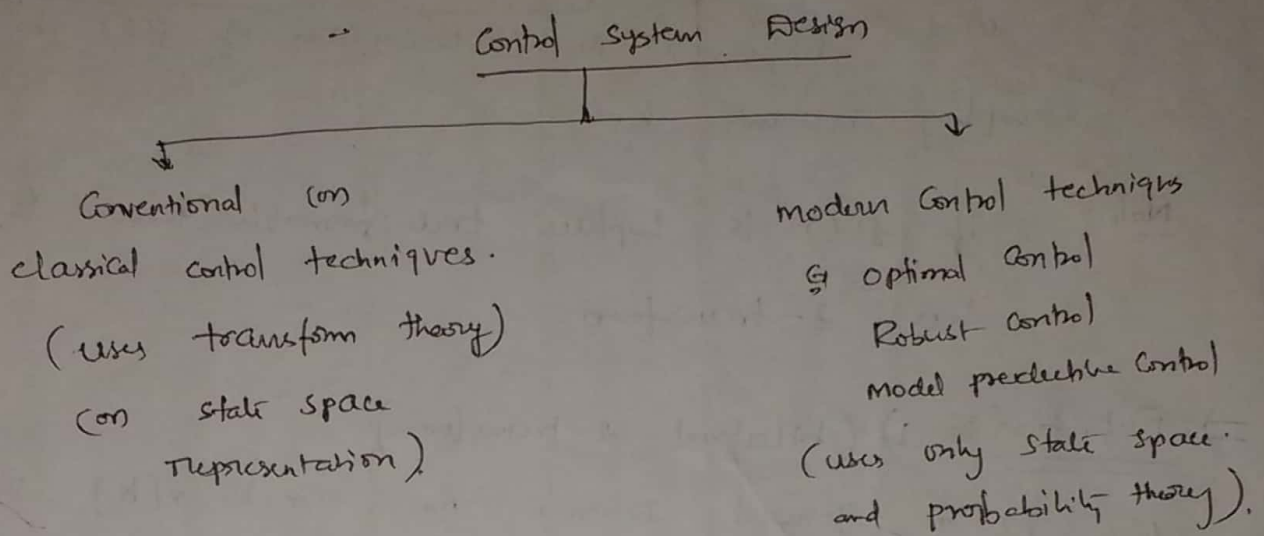 Control System Design
Conventional (or)
classical control techniques.
(uses transform theory)
(or) state space
representation).
modern Control techniqus
Eg optimal Control
Robust Control
model predective Control
(uses only state space.
and probability theory).